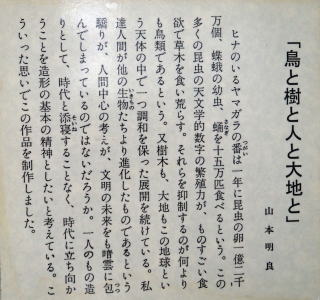 「鳥と樹と人と大地と」
山本明良
ヒナのいるヤマガラの番は一年に昆虫の卵一億二千
万個、蝶蛾の幼虫、蛹を十五万匹食べるという。この
多くの昆虫の天文学的数字の繁殖力が、ものすごい食
欲で草木を食い荒らす。それらを抑制するのが何より
も鳥類であるという。又樹木も、大地もこの地球とい
う天体の中で一つ調和を保った展開を続けている。私
達人間が他の生物たちより進化したものであるという
驕りが、人間中心の考えが、文明の未来をも暗雲に包
んでしまっているのではないだろうか。一人のもの造
りとして、時代と添寝することなく、時代に立ち向か
うことを造形の基本の精神としたいと考えている。こ
ういった思いでこの作品を制作しました。